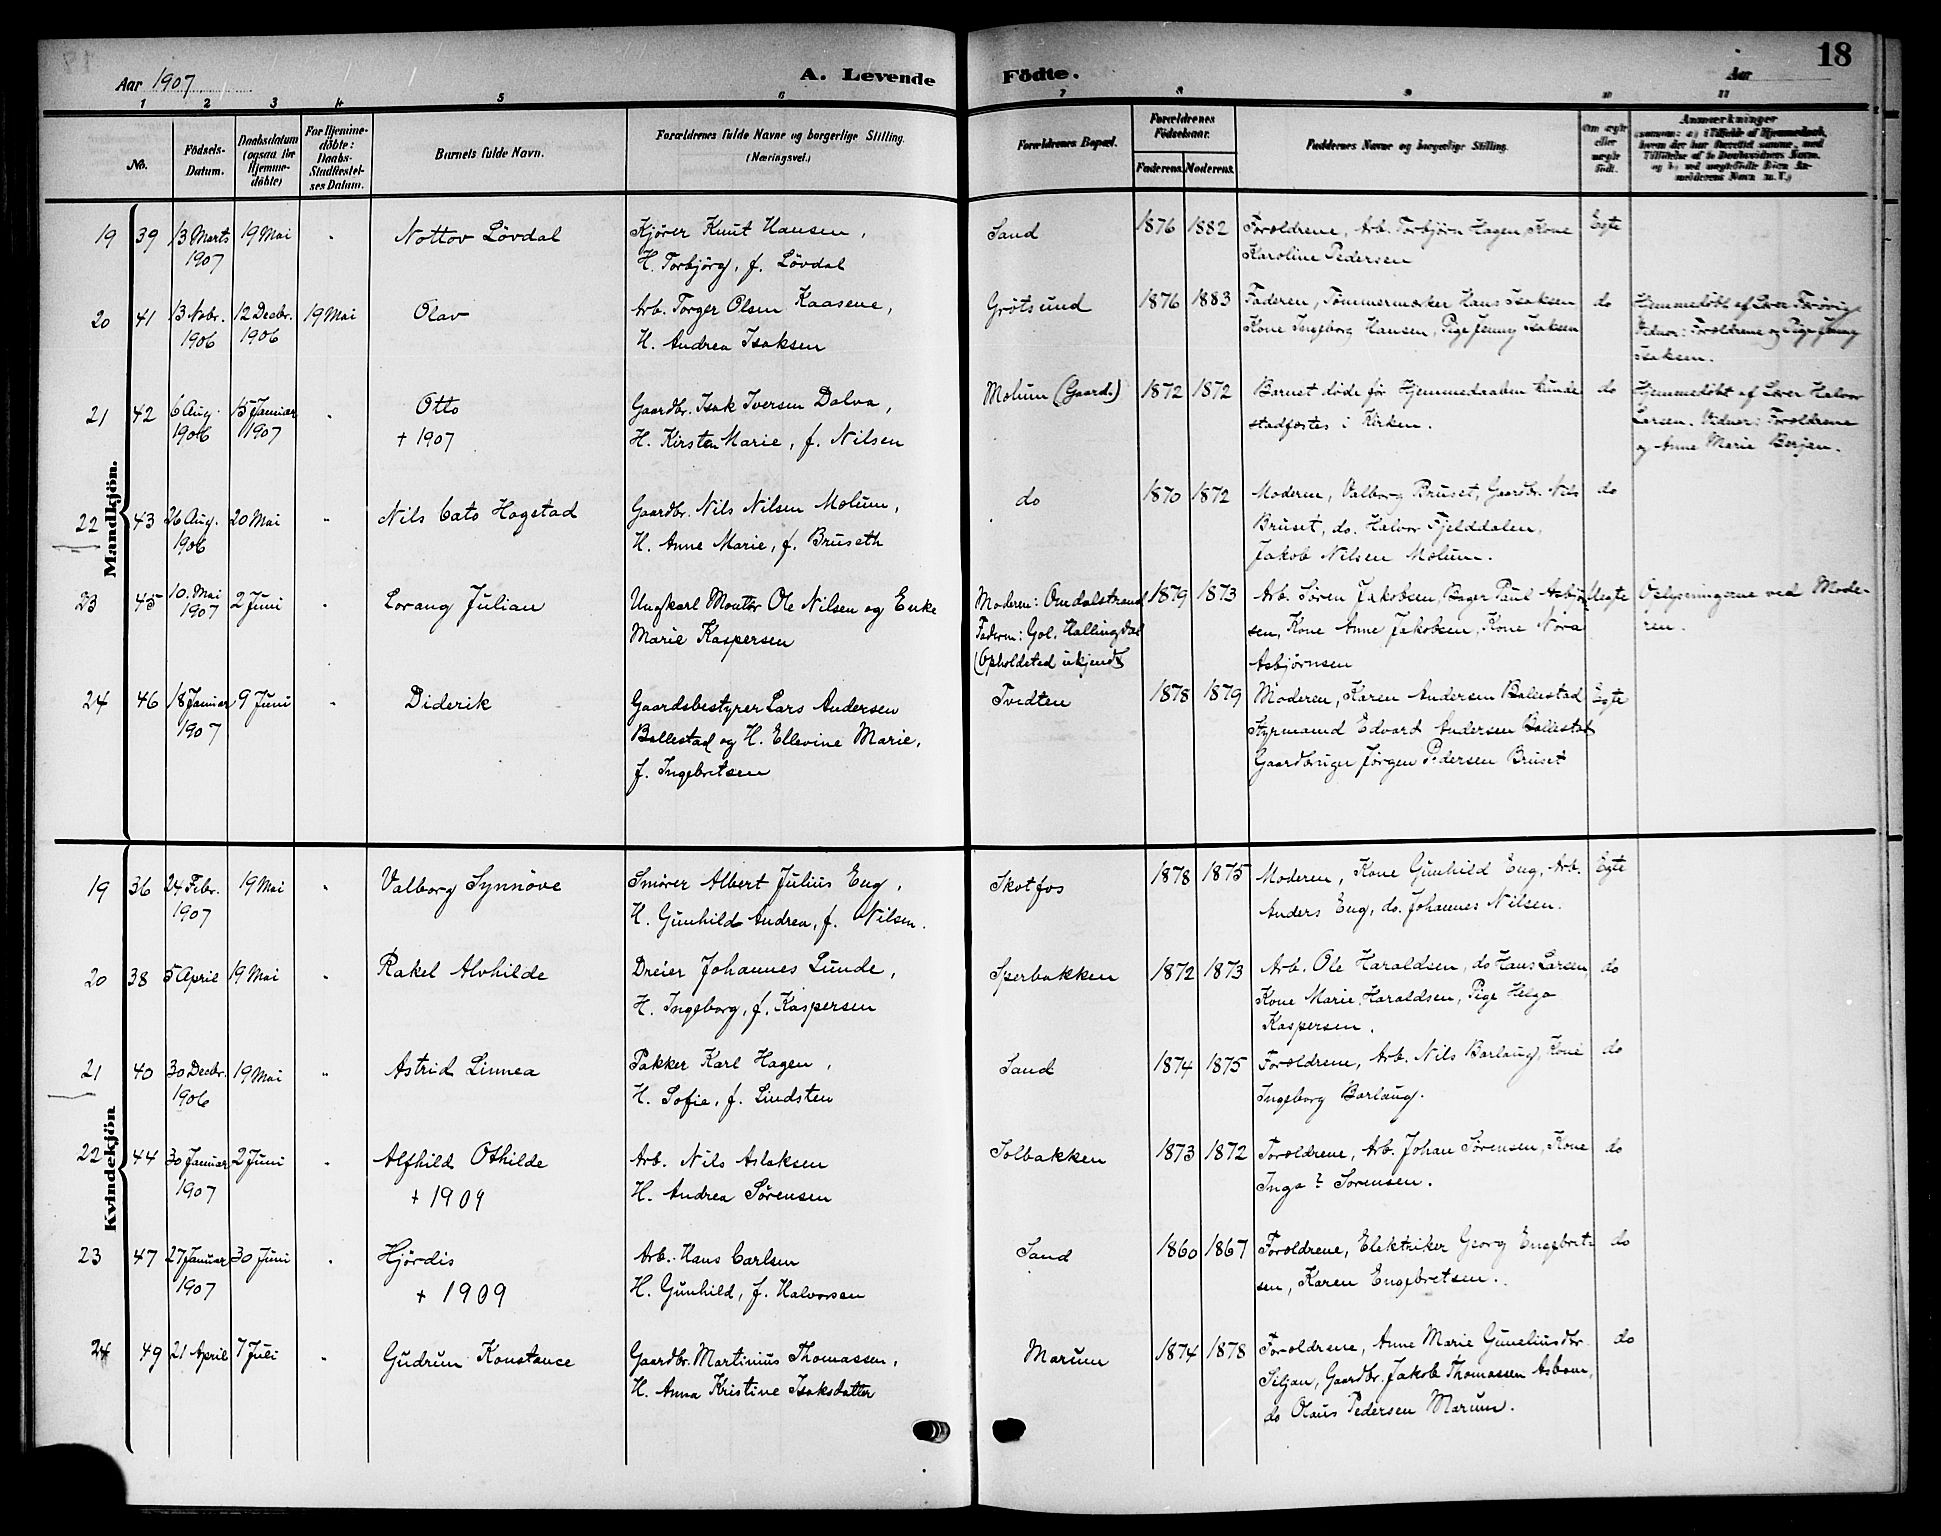 18
Aar 1907
A. Levende Födte.
Aar
1 2 3 4 5 6 7 8 9 10 11
No.
Födsels-
Datum.
Daabsdatum
(ogsaa for
Hjemme-
döbte)
For Hjemme-
döbte:
Daabs-
Stadfæstel-
ses Datum.
Barnets fulde Navn.
Forældrenes fulde Navne og borgerlige Stilling.
(Næringsvei.)
Forældrenes Bopæl.
Forældrenes
Födselsaar.
Faderens. Moderens.
Faddernes Navne og borgerlige Stilling.
Om ægte
eller
uægte
født.
Anmærkninger
Mandkjön.
19 39 13 Marts 19 Mai " Nottov Lövdal Kjörer Knut Hansen, Sand 1876 1882 Forældrene, Arb. Torbjörn Hagen, Kone Egte
1907 H. Torbjörg, f. Lövdal Karoline Pedersen
20 41 13 Nobr. 12 Decbr. 19 Mai Olav Arb. Torger Olsen Kaasene, Grötsund 1876 1883 Faderen, Tømmermærker Hans Isaksen do Hjemmedøbt af Lærer
1906 1906 H. Andrea Isaksen Kone Ingeborg Hansen, Pige Jenny Isaksen Vidner: Forældrene og Pige Jenny
Isaksen.
21 42 6 Aug. 15 Januar " Otto Gaardbr. Isak Iversen Dalva, Molum (Gaard) 1872 1872 Barnet døde før Hjemmedaaben kunde do Hjemmedøbt af Lærer Halvor
1906 1907 + 1907 H. Kirsten Marie, f. Nilsen stadfæstes i Kirken. Larsen. Vidner: Forældrene
og Anne Marie Berjan.
22 43 26 Aug. 20 Mai " Nils Cato Hogstad Gaardbr. Nils Nilsen Molum, do 1870 1872 Moderen, Valborg Bruset, Gaardbr. Nils do
1906 H. Anne Marie, f. Bruseth Bruset, do. Halvor Fjelddalen.
Jakob Nilsen Molum.
23 45 10. Mai 2 Juni " Lorang Julian Ungkarl Montør Ole Nilsen og Enke Moderen: Omdalstrand 1879 1873 Arb. Sören Jakobsen, Bager Paul Asbjörn- Uegte Oplysningerne ved Mode-
1907 Marie Kaspersen Faderen: Gol. Hallingdal sen, Kone Anne Jakobsen, Kone Nora ren.
(Opholdsted ukjendt) Asbjörnsen
24 46 18 Januar 9 Juni " Diderik Gaardsbestyrer Lars Andersen Tvedten 1878 1879 Moderen, Karen Andersen Ballestad Egte
1907 Ballestad og H. Ellevine Marie, Styrmand Edvard Andersen Ballestad
f. Ingebretsen Gaardbruger Jørgen Pedersen Bruset
Kvindekjön
19 36 24 Febr. 19 Mai " Valborg Synnöve Smörer Albert Julius Eng, Skotfos 1878 1875 Moderen, Kone Gunhild Eng, Arb. Egte
1907 H. Gunhild Andrea, f. Nilsen. Anders Eng, do. Johannes Nilsen.
20 38 5 April 19 Mai " Rakel Alvhilde Dreier Johannes Lunde, Sperbakken 1872 1873 Arb. Ole Haraldsen, do Hans Larsen, do
H. Ingeborg, f. Kaspersen Kone Marie Haraldsen, Pige Helga
Kaspersen.
21 40 30 Decbr. 19 Mai " Astrid Linnea Pakker Karl Hagen, Sand 1874 1875 Forældrene, Arb. Nils Barlaug, Kone do
1906 H. Sofie, f. Lindsten Ingeborg Barlaug.
22 44 30 Januar 2 Juni " Alfhild Othilde Arb. Nils Aslaksen Solbakken 1873 1872 Forældrene, Arb. Johan Sørensen, Kone do
1907 + 1909 H. Andrea Sørensen Inga ? Sørensen.
23 47 27 Januar 30 Juni " Hjördis Arb. Hans Carlsen Sand 1860 1867 Forældrene, Elektriker Georg Engebret- do
1907 + 1909 H. Gunhild, f. Halvorsen sen, Karen Engebretsen.
24 49 21 April 7 Juli " Gudrun Konstance Gaardbr. Martinius Thomassen, Marum 1874 1878 Forældrene, Anne Marie Guneliusdtr. do
H. Anna Kristine Isaksdatter Siljan, Gaardbr. Jakob Thomassen Asbom,
do Olaus Pedersen Marum.